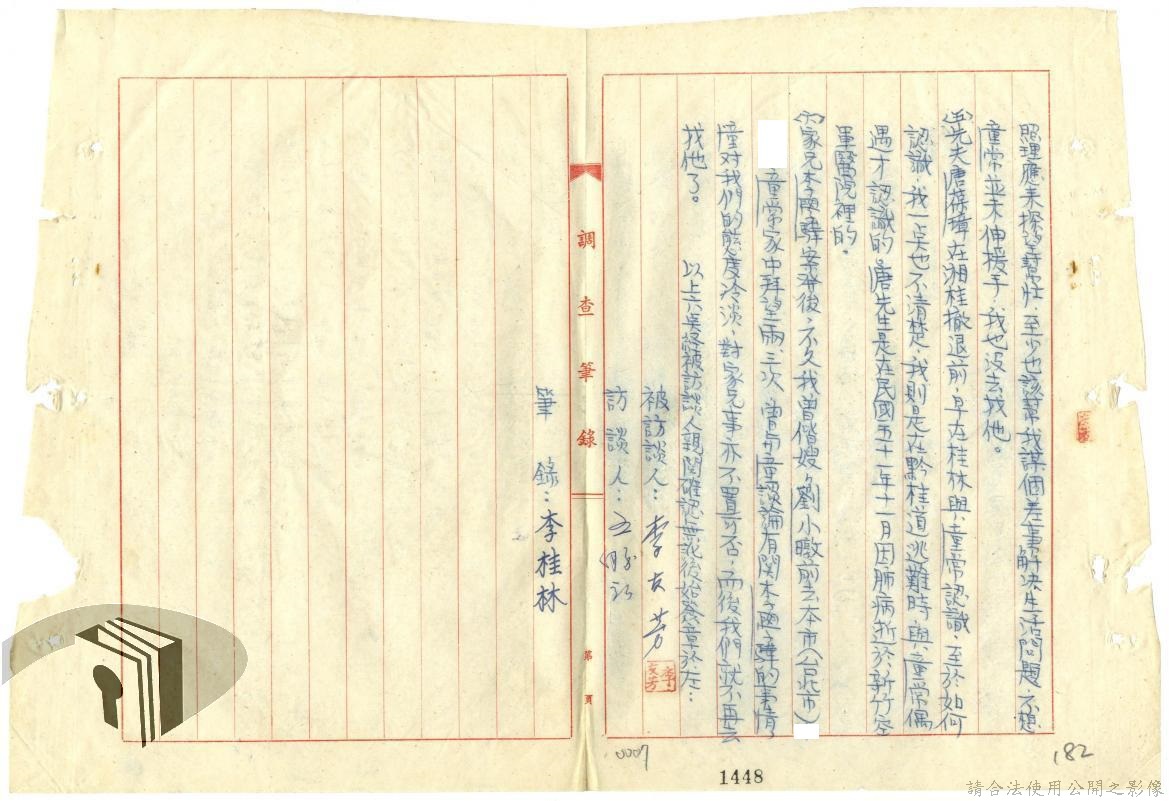 照理應來探望幫忙，至少也該幫我謀個差事解決生活問題，不想
童常並未伸援手，我也沒去找他。
先夫唐葆 在湘桂撤退前，早在桂林與童常認識，至於如何
認識，我一點也不清楚，我則是在黔桂道逃難時與童常偶
遇才認識的。唐先生是在民國五十一年十一月因肺病逝於新竹空
軍醫院裡的。
家兄李 案發後，不久我曾偕嫂劉小 前去本市(台北市)
童常家中拜望兩、三次，曾與童談論有關李 的事情，
童對我們的態度冷淡，對家兄事亦不置可否，而後我們就不再去
找他了。
以上六點經被訪談人親閱確認無訛後始簽章於左：
被訪談人：李友芳
李友芳
訪談人：
筆錄：李桂林
調查筆錄
第 頁
0007
1448
182
請合法使用公開之影像